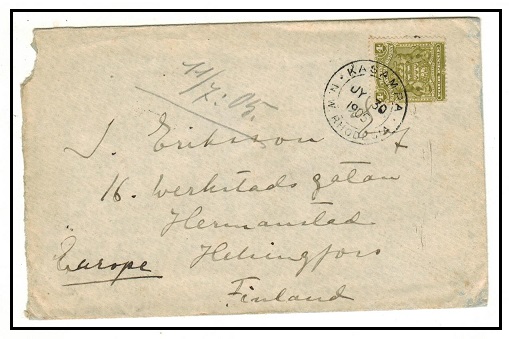 11/7. 05.
· KASAMPA ·
N.W. RHODESIA
JY 30
1905
J. Eriksson
16. Werkstads gatan
Hermanstad
Helsingfors
Europe
Finland